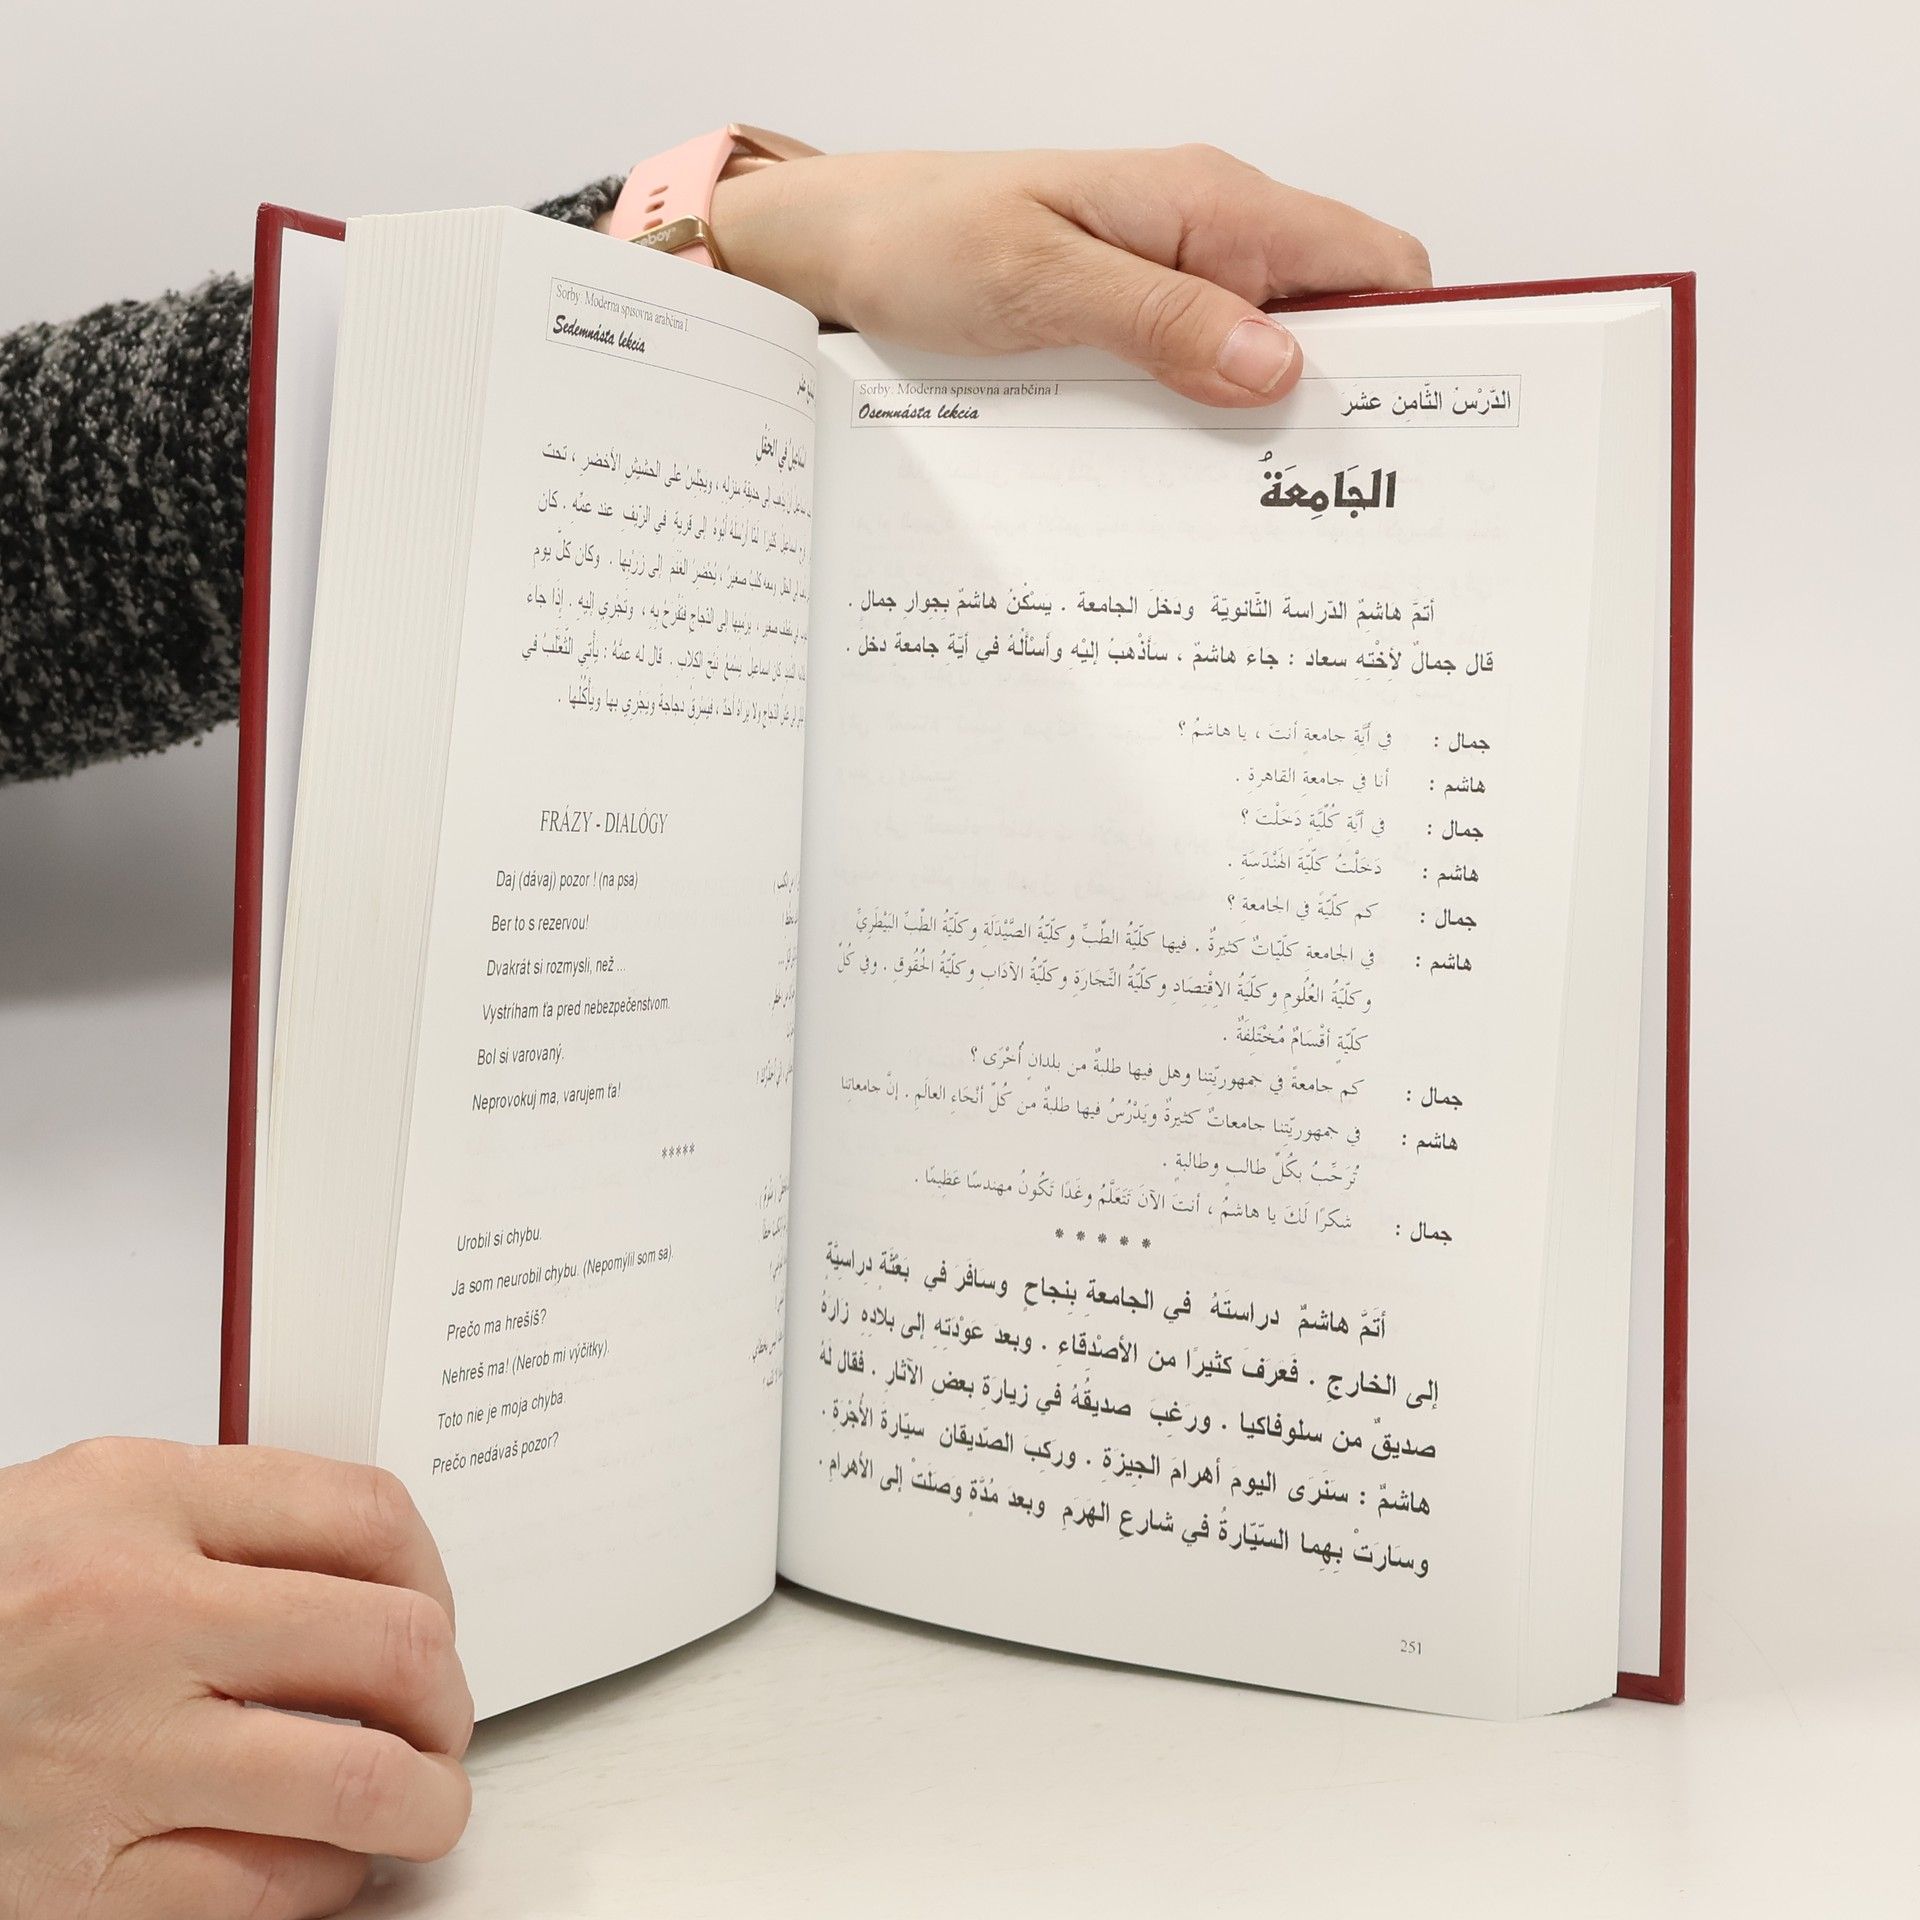 Sorby: Moderna spisovna arabčina I.
Sedemnásta lekcia
في الحَقْلِ
حديقةِ منزلِهِ ، ويجْلِسُ على الحشيشِ الأخضرِ ، تحت
اسماعيلُ كثيرًا لمّا أرْسَلَهُ أبُوهُ إلى قريةٍ في الرّيفِ عند عمِّهِ . كان
ومعه كلبٌ صغيرٌ ، يُحْضِرُ الغَنَمَ إلى زَرْبِها . وكان كلّ يوم
صغير ، يرميها إلى الدّجاجِ فتَفْرَحُ بِهِ ، وتَجْرِي إليهِ . إذا جاء
كان اسماعيلُ يَسْمَعُ نَبْحَ الكِلابِ . قال له عمُّهُ : يأتِي الثّعْلَبُ في
الدّجاجِ ولا يراهُ أحدٌ ، فيَسْرِقُ دجاجةً ويَجْرِي بها ويأْكُلُها .
FRÁZY - DIALÓGY
Daj (dávaj) pozor ! (na psa)
Ber to s rezervou!
Dvakrát si rozmysli, než ...
Vystríham ťa pred nebezpečenstvom.
Bol si varovaný.
Neprovokuj ma, varujem ťa!
*****
Urobil si chybu.
Ja som neurobil chybu. (Nepomýlil som sa).
Prečo ma hrešíš?
Nehreš ma! (Nerob mi výčitky).
Toto nie je moja chyba.
Prečo nedávaš pozor?
Sorby: Moderna spisovna arabčina I.
Osemnásta lekcia
الدَّرْسُ الثَّامِن عشَرَ
الجَامِعَةُ
أتمَّ هاشِمٌ الدّراسة الثّانويّة ودَخَلَ الجامعة . يَسْكُنُ هاشمٌ بِجِوارِ جمالٍ .
قال جمالٌ لأخْتِهِ سعاد : جاءَ هاشمٌ ، سأذْهَبُ إليْهِ وأسْألُهُ في أيّةِ جامعة دخل .
جمال : في أيَّةِ جامعةٍ أنتَ ، يا هاشمُ ؟
هاشم : أنا في جامعةِ القاهرةِ .
جمال : في أيَّةِ كُلِّيَّةٍ دَخَلْتَ ؟
هاشم : دَخَلْتُ كلّيّةَ الهَنْدَسَةِ .
جمال : كم كلّيّةً في الجامعةِ ؟
هاشم : في الجامعة كلّيّاتٌ كثيرةٌ . فيها كلّيّةُ الطِّبِّ وكلّيّةُ الصَّيْدَلَةِ وكلّيّةُ الطِّبِّ البَيْطَرِيِّ
وكلّيّةُ العُلُومِ وكلّيّةُ الاِقْتِصَادِ وكلّيّةُ التِّجَارَةِ وكلّيّةُ الآدَابِ وكلّيّةُ الحُقُوقِ . وفي كُلِّ
كلّيّةٍ أقْسَامٌ مُخْتَلِفَةٌ .
جمال : كم جامعةً في جمهوريّتِنا وهل فيها طلبةٌ من بلدانٍ أُخْرَى ؟
هاشم : في جمهوريّتِنا جامعاتٌ كثيرةٌ ويَدْرُسُ فيها طلبةٌ من كُلِّ أنْحَاءِ العالَمِ . إنَّ جامعاتِنا
تُرَحِّبُ بكُلِّ طالبٍ وطالبةٍ .
جمال : شكرًا لَكَ يا هاشمُ ، أنتَ الآنَ تَتَعَلَّمُ وغَدًا تَكُونُ مهندسًا عَظِيمًا .
* * * * *
أتَمَّ هاشمٌ دراستَهُ في الجامعةِ بِنجاحٍ وسَافَرَ في بَعْثَةٍ دِراسِيَّةٍ
إلى الخارجِ . فَعَرَفَ كثيرًا من الأصْدقاءِ . وبعدَ عَوْدَتِهِ إلى بلادِهِ زَارَهُ
صديقٌ من سلوفاكيا . ورَغِبَ صديقُهُ في زيارَةِ بعضِ الآثارِ . فقال لهُ
هاشمٌ : سَنَرَى اليومَ أهرامَ الجِيزَةِ . ورَكِبَ الصّديقان سيّارةَ الأُجْرَةِ .
وسَارَتْ بِهِما السّيّارةُ في شارعِ الهَرَمِ وبعدَ مُدَّةٍ وَصَلَتْ إلى الأهرامِ .
251